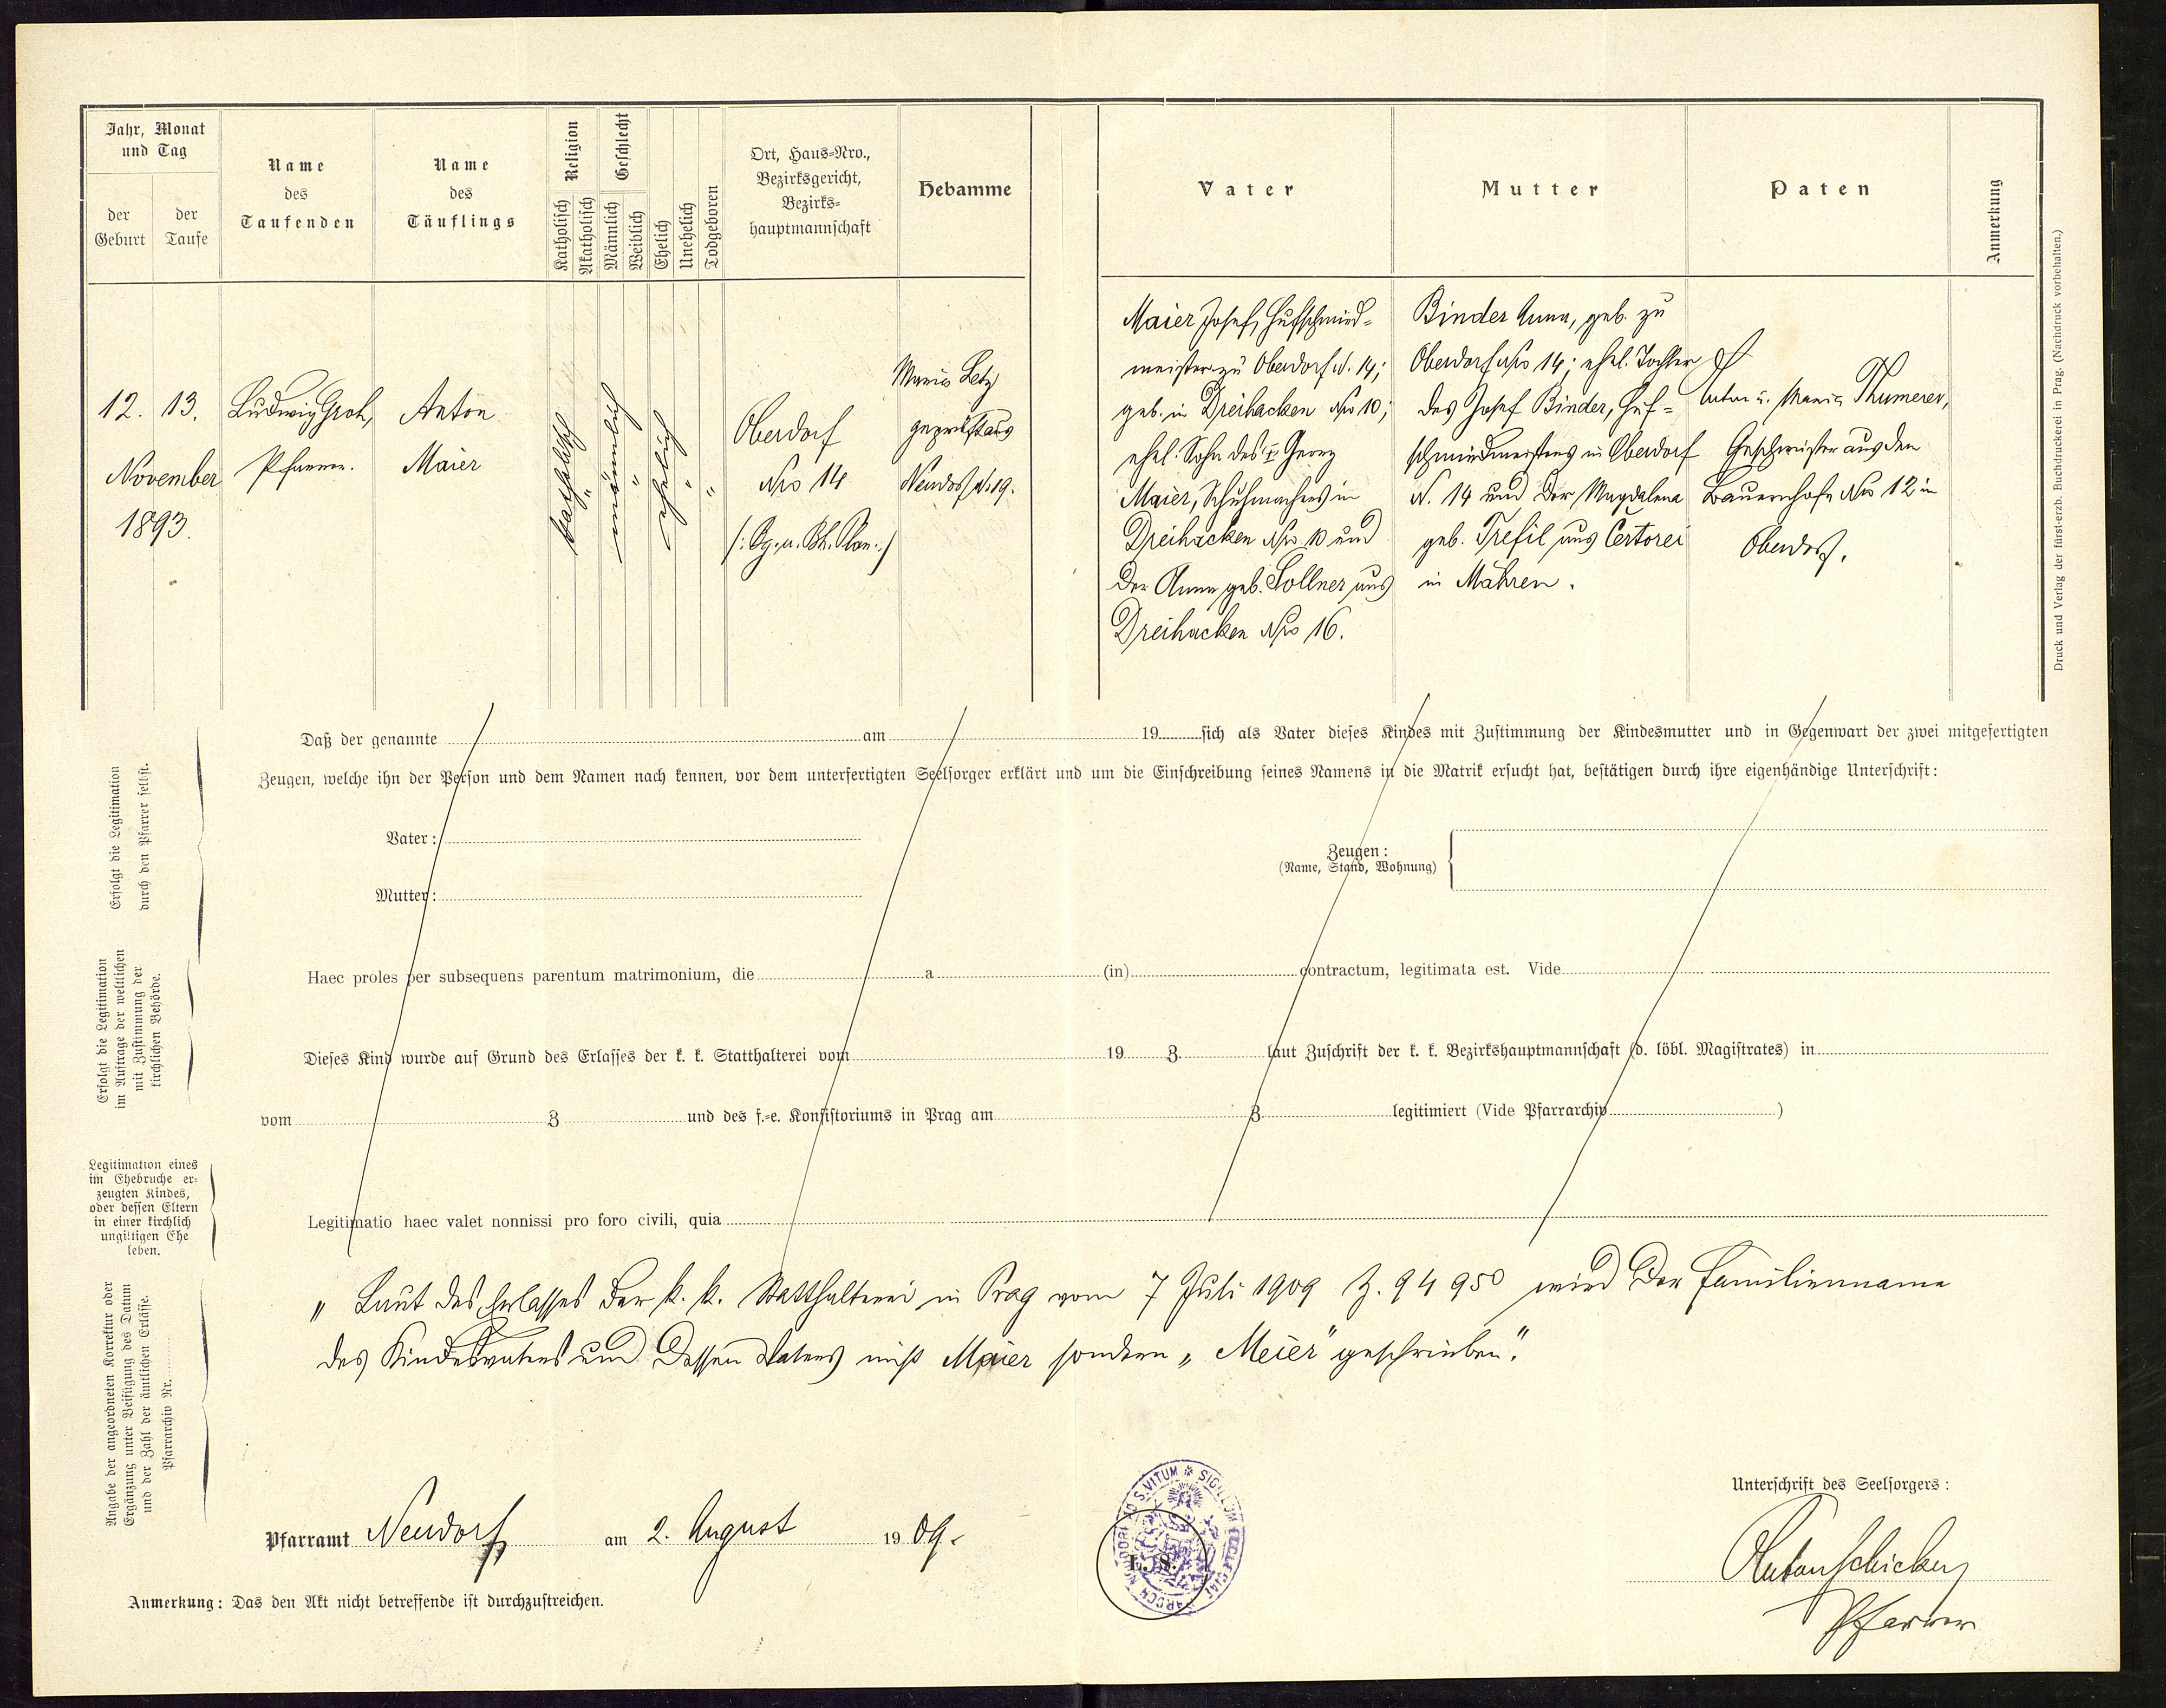 Jahr, Monat
und Tag
der
Geburt
der
Taufe
Name
des
Taufenden
Name
des
Täuflings
Religion
Katholisch
Akatholisch
Geschlecht
Männlich
Weiblich
Ehelich
Unehelich
Todgeboren
Ort, Haus=Nro.,
Bezirksgericht,
Bezirks=
hauptmannschaft
Hebamme
Vater
Mutter
Paten
Anmerkung
12. 13.
November
1893.
Ludwig Groh,
Pfarrer.
Anton
Maier
katholisch
"
männlich
"
ehelich
"
"
Oberdorf
Nro 14
/: Bg. u. Bh. Plan :/
Maria Letz
geprüft aus
Neudorf N. 19.
Maier Josef, Hufschmied=
meister zu Oberdorf N. 14;
geb. in Dreihacken Nro 10;
ehel. Sohn des Georg
Maier, Schuhmachers in
Dreihacken Nro 10 und
der Anna geb. Sollner aus
Dreihacken Nro 16.
Binder Anna, geb. zu
Oberdorf Nro 14; ehel. Tochter
des Josef Binder, Huf=
schmiedmeisters in Oberdorf
N. 14 und der Magdalena
geb. Trefil aus Certorei
in Mähren.
Anton u. Maria Thumerer,
Geschwister aus dem
Bauernhofe Nro 12 in
Oberdorf.
Druck und Verlag der fürst-erzb. Buchdruckerei in Prag. (Nachdruck vorbehalten.)
Daß der genannte am 19 sich als Vater dieses Kindes mit Zustimmung der Kindesmutter und in Gegenwart der zwei mitgefertigten
Zeugen, welche ihn der Person und dem Namen nach kennen, vor dem unterfertigten Seelsorger erklärt und um die Einschreibung seines Namens in die Matrik ersucht hat, bestätigen durch ihre eigenhändige Unterschrift:
Erfolgt die Legitimation
durch den Pfarrer selbst.
Vater:
Mutter:
Zeugen:
(Name, Stand, Wohnung)
Haec proles per subsequens parentum matrimonium, die a (in) contractum, legitimata est. Vide
Erfolgt die Legitimation
im Auftrage der weltlichen
mit Zustimmung der
kirchlichen Behörde.
Dieses Kind wurde auf Grund des Erlasses der k. k. Statthalterei vom 19 Z. laut Zuschrift der k. k. Bezirkshauptmannschaft (d. löbl. Magistrates) in
vom Z und des f.=e. Konsistoriums in Prag am Z. legitimiert (Vide Pfarrarchiv )
Legitimation eines
im Ehebruche er=
zeugten Kindes,
oder dessen Eltern
in einer kirchlich
ungiltigen Ehe
leben.
Legitimatio haec valet nonnissi pro foro civili, quia
Angabe der angeordneten Korrektur oder
Ergänzung unter Beifügung des Datum
und der Zahl der ämtlichen Erlässe.
Pfarrarchiv Nr.
„ Laut des Erlasses der k. k. Statthalterei in Prag vom 7 Juli 1909 Z. 94 950 wird der Familienname
des Kindesvaters und dessen Vaters nicht Maier sondern „Meier" geschrieben."
Pfarramt Neudorf am 2. August 1909.
SIGILLUM ECCLESIAE PAROCH NEUDORF AD S. VITUM
L. S.
Unterschrift des Seelsorgers:
Anton Schicker
Pfarrer
Anmerkung: Das den Akt nicht betreffende ist durchzustreichen.